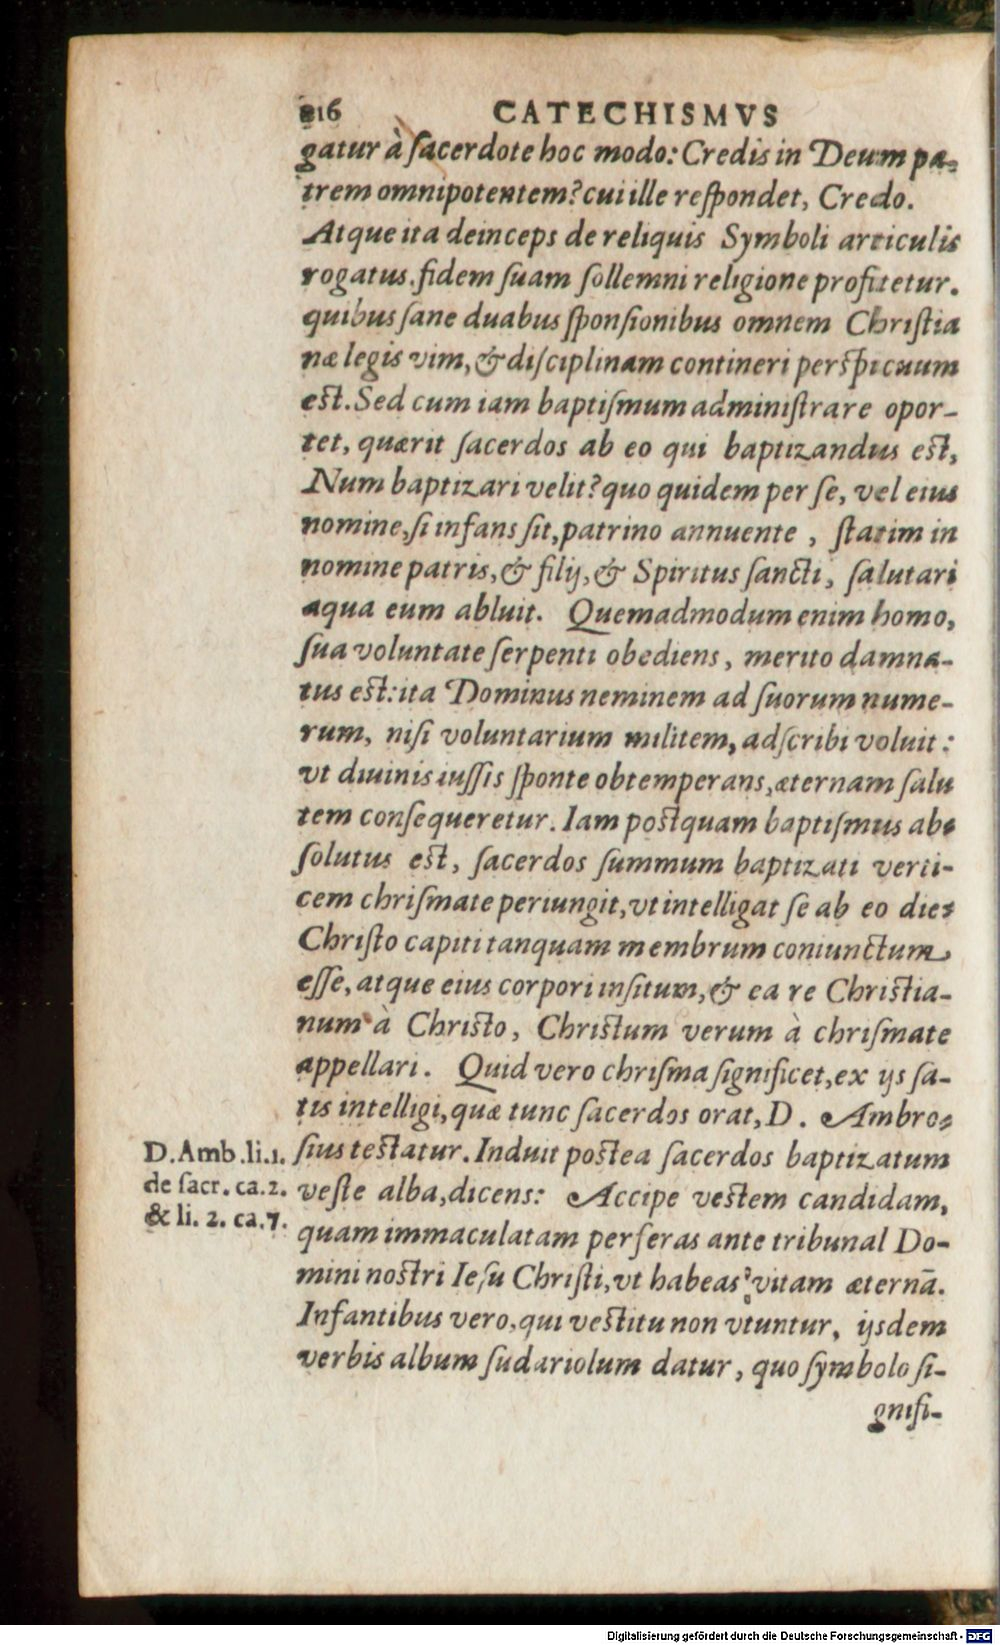 216
CATECHISMVS
gatur à ſacerdote hoc modo: Credis in Deum pa-
trem omnipotentem? cui ille reſpondet, Credo.
Atque ita deinceps de reliquis Symboli articulis
rogatus, fidem ſuam ſollemni religione profitetur.
quibus ſane duabus ſponſionibus omnem Chriſtia
næ legis vim, & diſciplinam contineri perſpicuum
eſt. Sed cum iam baptiſmum adminiſtrare opor-
tet, quærit ſacerdos ab eo qui baptizandus eſt,
Num baptizari velit? quo quidem per ſe, vel eius
nomine, ſi infans ſit, patrino annuente , ſtatim in
nomine patris, & filij, & Spiritus ſancti, ſalutari
aqua eum abluit. Quemadmodum enim homo,
ſua voluntate ſerpenti obediens, merito damna-
tus eſt: ita Dominus neminem ad ſuorum nume-
rum, niſi voluntarium militem, adſcribi voluit:
vt diuinis iuſſis ſponte obtemperans, æternam ſalu
tem conſequeretur. Iam poſtquam baptiſmus ab-
ſolutus eſt, ſacerdos ſummum baptizati verti-
cem chriſmate periungit, vt intelligat ſe ab eo die
Chriſto capiti tanquam membrum coniunctum
eſſe, atque eius corpori inſitum, & ea re Chriſtia-
num à Chriſto, Chriſtum verum à chriſmate
appellari. Quid vero chriſma ſignificet, ex ijs ſa-
tis intelligi, quæ tunc ſacerdos orat, D. Ambro-
ſius teſtatur. Induit poſtea ſacerdos baptizatum
veſte alba, dicens: Accipe veſtem candidam,
quam immaculatam perferas ante tribunal Do-
mini noſtri Ieſu Chriſti, vt habeas vitam æternā.
Infantibus vero, qui veſtitu non vtuntur, ijsdem
verbis album ſudariolum datur, quo ſymbolo ſi-
gnifi-
D. Amb. li. 1.
de ſacr. ca. 2.
& li. 2. ca. 7.
Digitalisierung gefördert durch die Deutsche Forschungsgemeinschaft - DFG